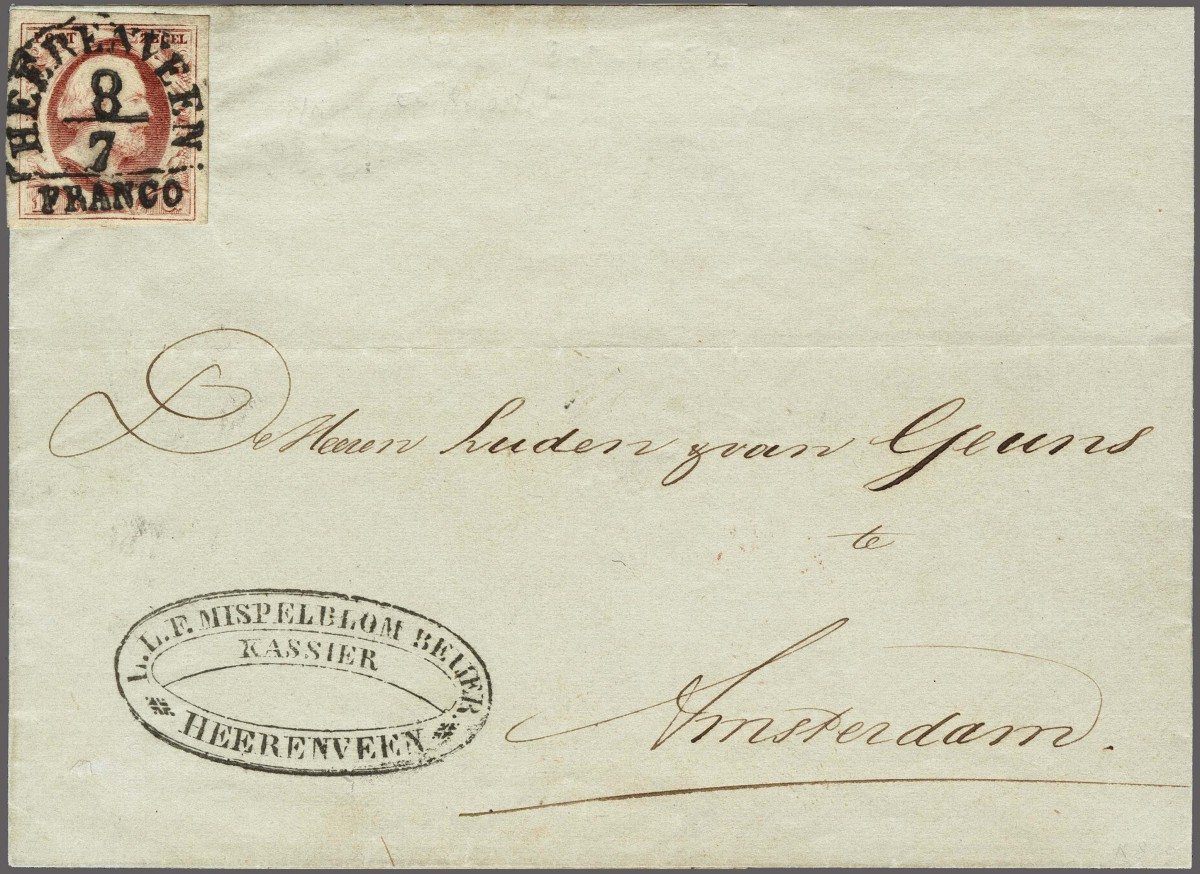 POST ZEGEL
HEERENVEEN
8
7
FRANCO
De Heeren Luden & van Geuns
te
Amsterdam.
L.L.F. MISPELBLOM BEIJER.
KASSIER
HEERENVEEN